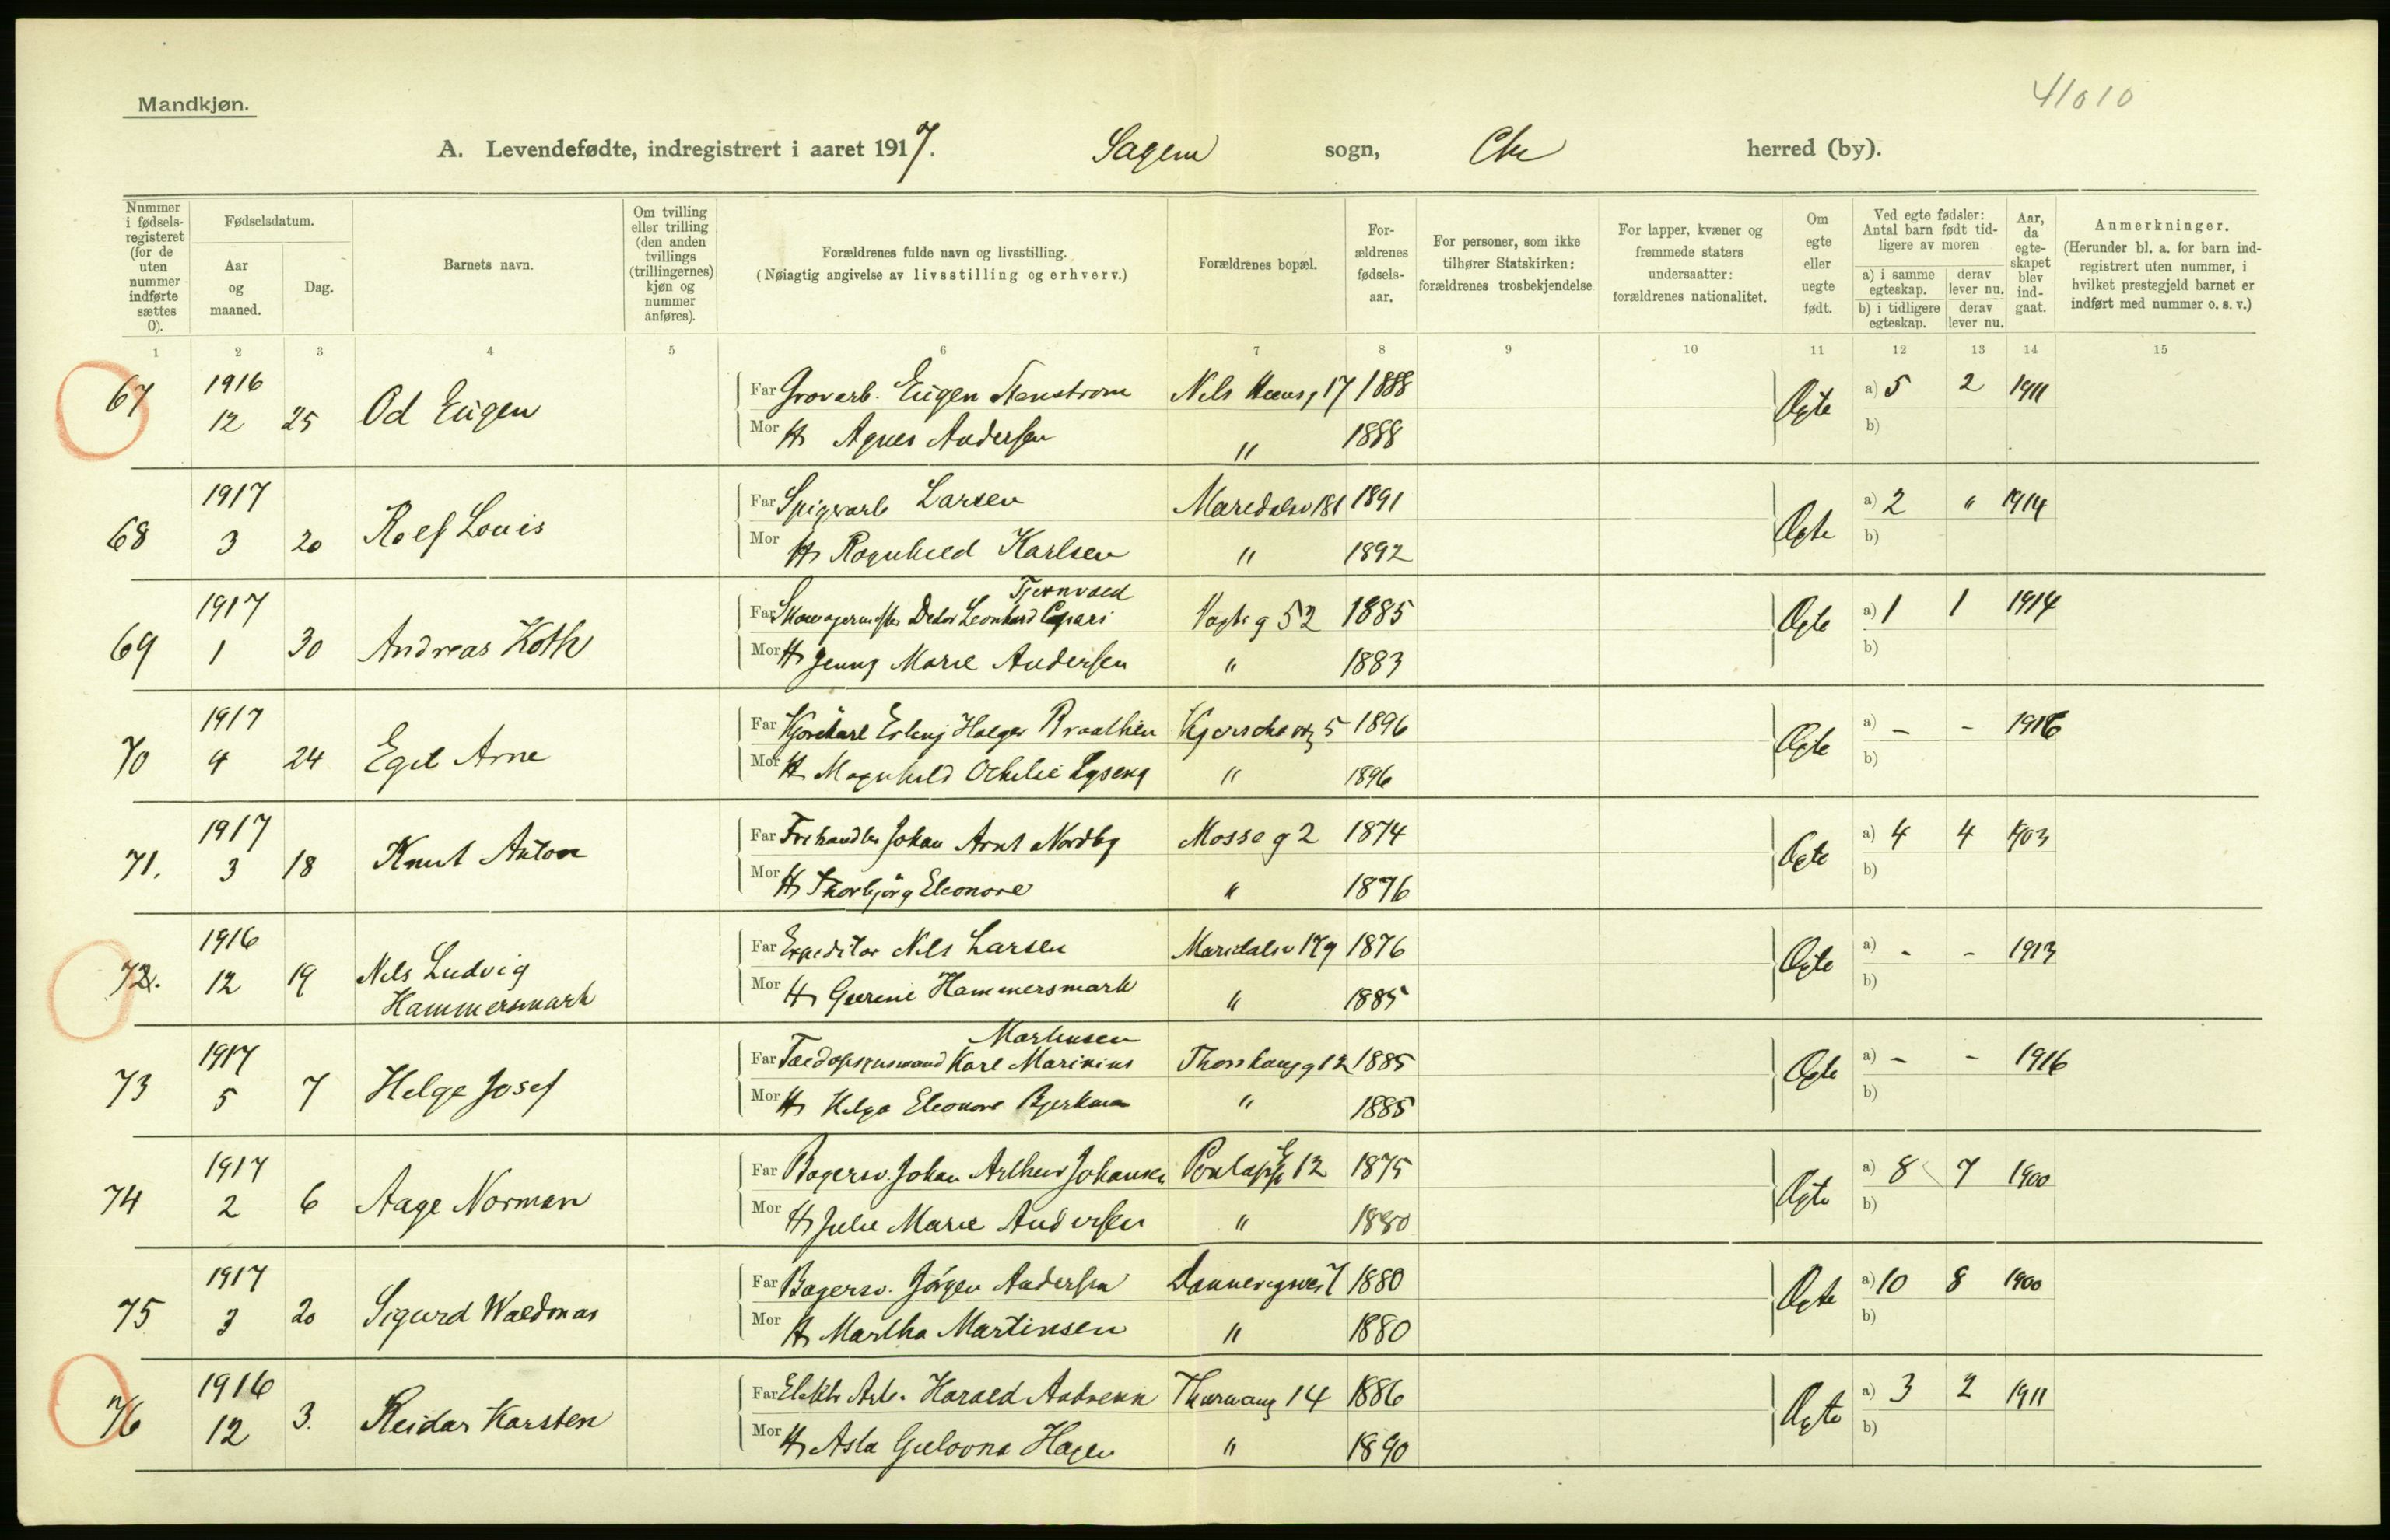 41010
Mandkjøn.
A. Levendefødte, indregistrert i aaret 1917. Sagene sogn, Chr herred (by).
Nummer i fødselsregisteret (for de uten nummer indførte sættes 0).
Fødselsdatum.
Aar og maaned.
Dag.
Barnets navn.
Om tvilling eller trilling (den anden tvillings (trillingernes) kjøn og nummer anføres).
Forældrenes fulde navn og livsstilling.
(Nøiagtig angivelse av livsstilling og erhverv.)
Forældrenes bopæl.
Forældrenes fødselsaar.
For personer, som ikke tilhører Statskirken: forældrenes trosbekjendelse
For lapper, kvæner og fremmede staters undersaatter: forældrenes nationalitet.
Om egte eller uegte født.
Ved egte fødsler: Antal barn født tidligere av moren
a) i samme egteskap. derav lever nu.
b) i tidligere egteskap. derav lever nu.
Aar, da egteskapet blev indgaat.
Anmerkninger.
(Herunder bl. a. for barn indregistrert uten nummer, i hvilket prestegjeld barnet er indført med nummer o. s. v.)
1 2 3 4 5 6 7 8 9 10 11 12 13 14 15
67 1916 12 25 Od Eugen
Far Grovarb. Eugen Stenstrom Nils 17 1888 Ægte a) 5 2 1911
Mor H Agnes Andersen " 1888 b)
68 1917 3 20 Rolf Louis
Far Spigerarb Larsen Maridalsv 181 1891 Ægte a) 2 " 1914
Mor H Ragnhild Karlsen " 1892 b)
69 1917 1 30 Andreas Koth
Tjernvold
Far Leonhard Vogts g 52 1885 Ægte a) 1 1 1914
Mor H Jenny Marie Andersen " 1883 b)
70 1917 4 24 Egil Arne
Far Kjørekarl Erling Holger Braathen 5 1896 Ægte a) – – 1916
Mor H Magnhild Othilie " 1896 b)
71. 1917 3 18 Knut Anton
Far Johan Arnt Nordby Mosse g 2 1874 Ægte a) 4 4 1903
Mor H Thorbjörg Eleonore " 1876 b)
72. 1916 12 19 Nils Ludvig Hammersmark
Far Expeditør Nils Larsen Maridalsv 179 1876 Ægte a) - - 1913
Mor H Hammersmark " 1885 b)
73 1917 5 7 Helge Josef
Martinsen
Far Toldopsynsmand Karl Marinius Thorshaug g 12 1885 Ægte a) – – 1916
Mor H Helga Eleonore Bjerkman " 1885 b)
74 1917 2 6 Aage Norman
Far Bagersv. Johan Arthur Johansen 12 1875 Ægte a) 8 7 1900
Mor H Julie Marie Andersen " 1880 b)
75 1917 3 20 Sigurd Waldmar
Far Bagersv. Jörgen Andersen Dannevigsvei 7 1880 Ægte a) 10 8 1900
Mor H Martha Martinsen " 1880 b)
76 1916 12 3. Reidar Karsten
Far Elektr Arb. Harald 14 1886 Ægte a) 3 2 1911
Mor H Asta Gulovna Hagen " 1890 b)